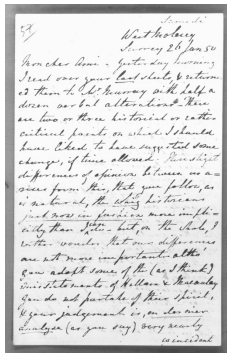 West Molesey
Surrey 26 Jan 50
Mon cher Ami - Yesterday morning
I read over your last sheets, & return
ed them to Mr Murray with half a
dozen verbal alterations. There
are two or three historical or rather
critical points on which I should
have liked to have suggested some
change, if time allowed. This slight
differences of opinion between us a-
rises from this, that you follow, as
is natural, the whig historians
just now in fashion more impli-
citly than I do; but, on the whole, I
rather wonder that our differences
are not more important. altho'
you adopt some of the (as I think)
misstatements of Hallam & Macaulay
you do not partake of their spirit,
& your judgement is, on
analysis (as you say) very nearly
coincident